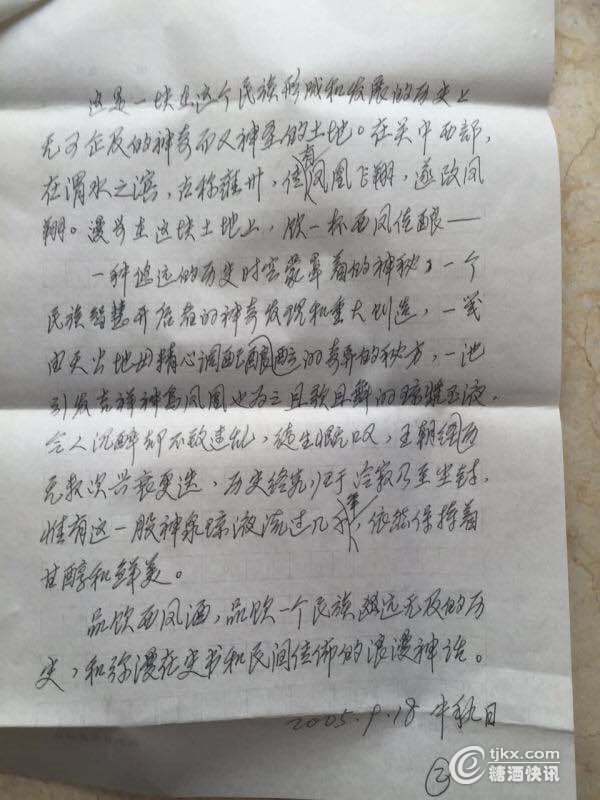 这是一块在这个民族形成和发展的历史上
无可企及的神奇而又神圣的土地。在关中西部,
在渭水之滨,古称雍州,因有凤凰飞翔,遂改凤
翔。漫步在这块土地上,饮一杯西凤佳酿——
一种悠远的历史时空蒙罩着的神秘,一个
民族智慧开启者的神奇发现和重大创造,一
由天公地母精心调配酿的奇异的秘方,一池
引发吉祥神鸟凤凰也为之且歌且舞的琼浆玉液,
令人沉醉却不致迷乱,徒生慨叹,王朝经历
无数次兴衰更迭,历史终究归于冷寂乃至尘封,
惟有这一股神泉琼液流过几千年,依然保持着
甘醇和鲜美。
品饮西凤酒,品饮一个民族遥远无及的历
史,和弥漫在史书和民间传佈的浪漫神话。
2005.9.18 中秋日
②
tjkx.com
糖酒快讯